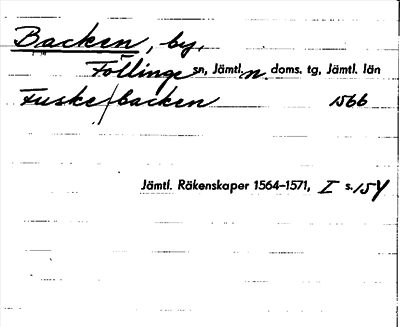 Backen, by,
Föllinge sn, Jämtl. n. doms. tg, Jämtl. län
Fuske/backen 1566
Jämtl. Räkenskaper 1564–1571, I s. 154